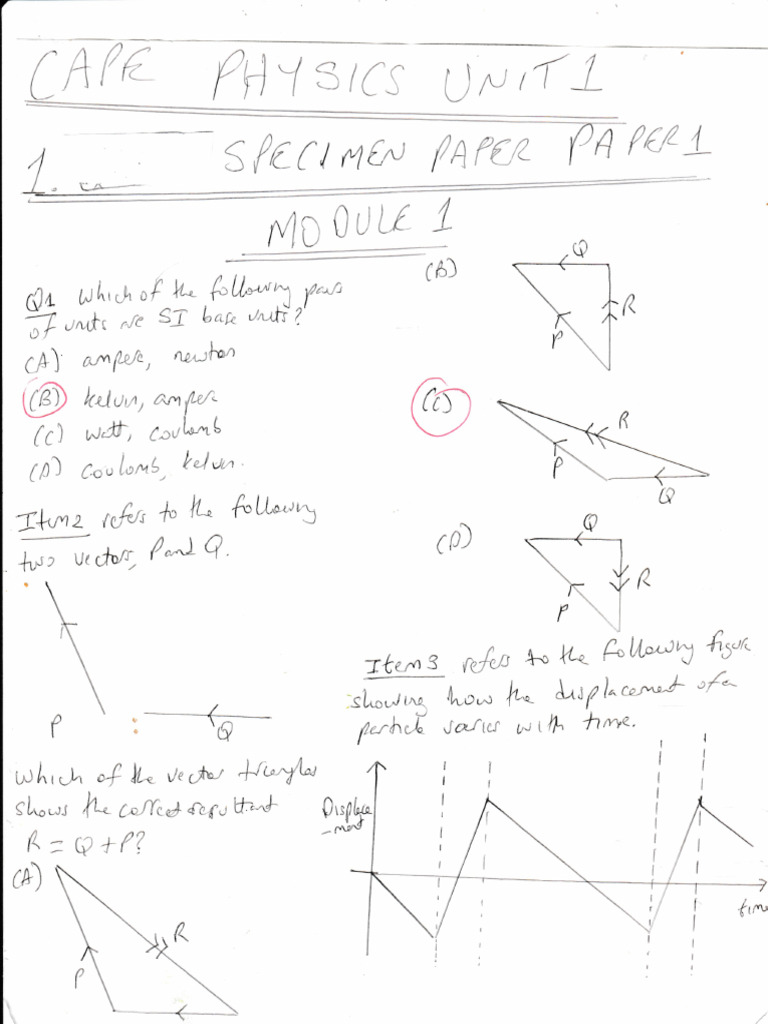 CAPE PHYSICS UNIT 1
1. SPECIMEN PAPER PAPER 1
MODULE 1
Q1 Which of the following pairs
of units are SI base units?
(A) ampere, newton
(B) kelvin, amper
(C) watt, coulomb
(D) coulomb, kelvin.
Item 2 refers to the following
two vectors, P and Q.
P
Q
Which of the vector triangles
shows the correct resultant
R = Q + P?
(A)
R
P
(B)
Q
R
P
(C)
R
P
Q
(D)
Q
R
P
Item 3 refers to the following figure
showing how the displacement of a
particle varies with time.
Displace
-ment
time